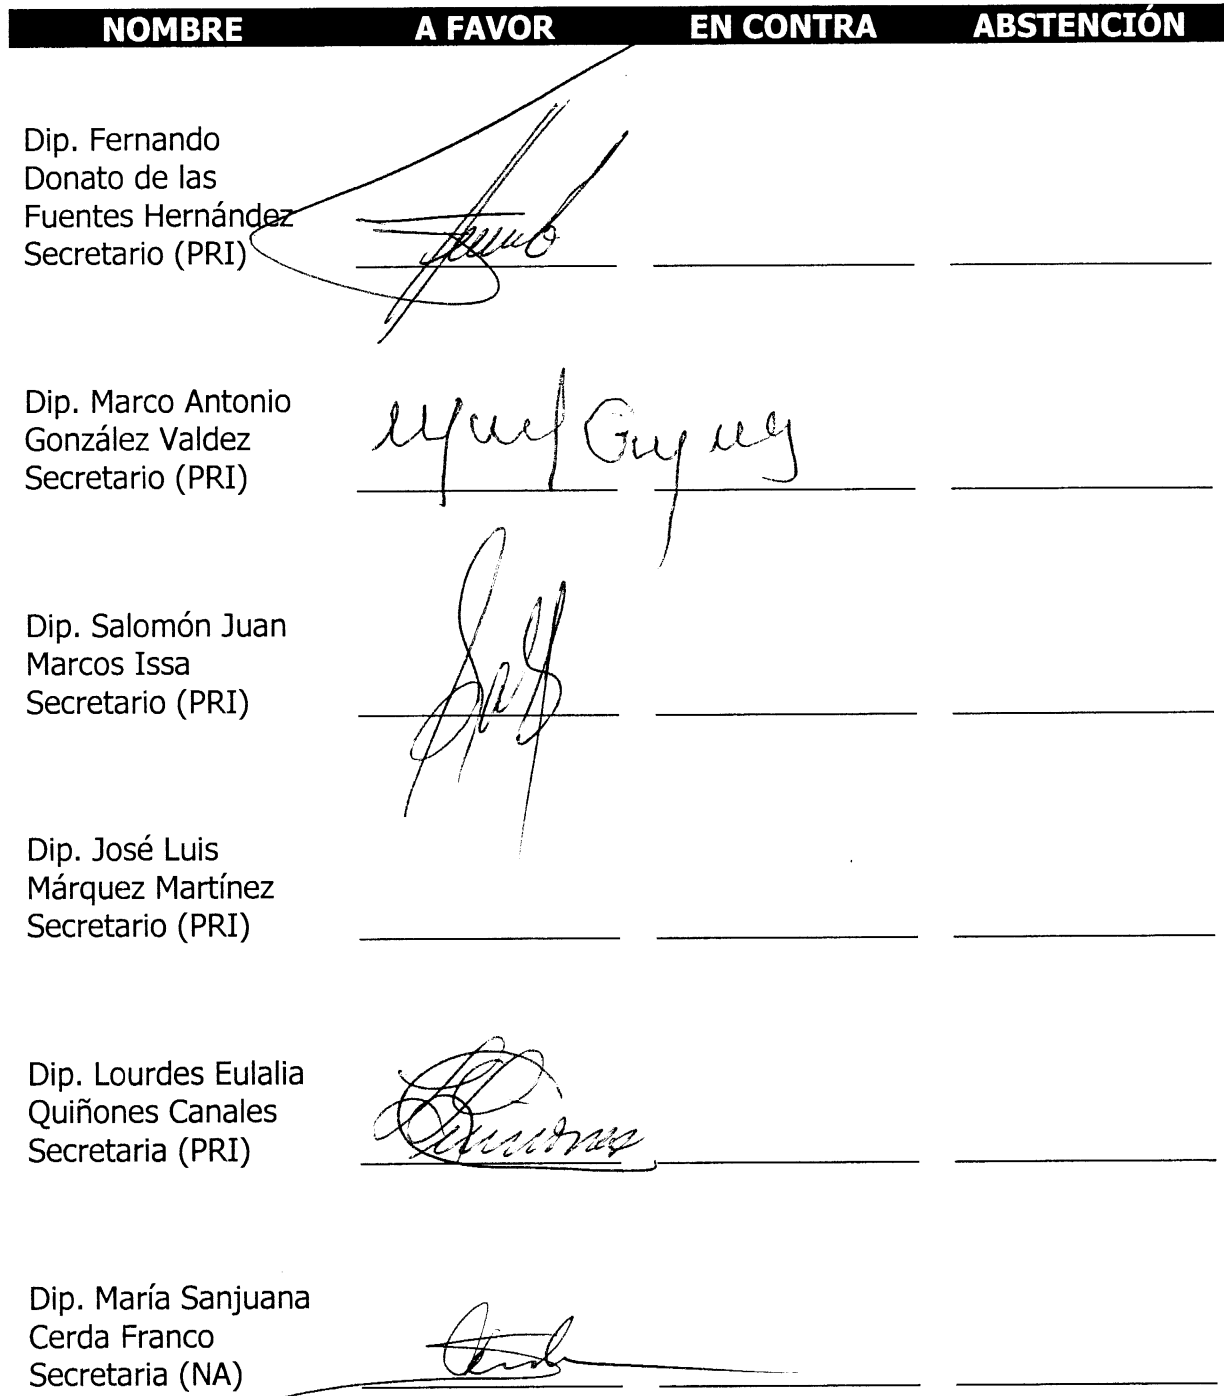 NOMBRE A FAVOR EN CONTRA ABSTENCIÓN
Dip. Fernando
Donato de las
Fuentes Hernández
Secretario (PRI)
Dip. Marco Antonio
González Valdez
Secretario (PRI)
Dip. Salomón Juan
Marcos Issa
Secretario (PRI)
Dip. José Luis
Márquez Martínez
Secretario (PRI)
Dip. Lourdes Eulalia
Quiñones Canales
Secretaria (PRI)
Dip. María Sanjuana
Cerda Franco
Secretaria (NA)